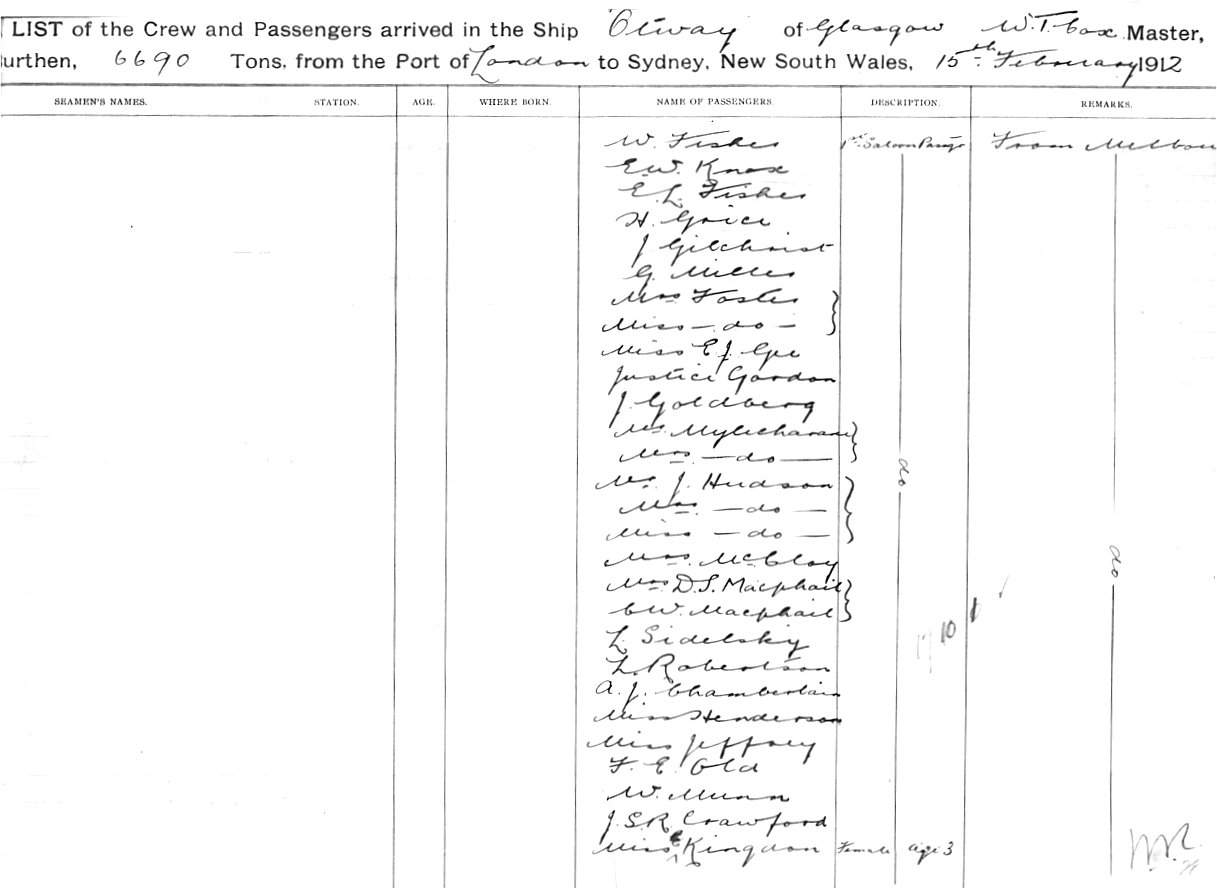 LIST of the Crew and Passengers arrived in the Ship Otway of Glasgow W.T. Cox Master,
urthen, 6690 Tons, from the Port of London to Sydney, New South Wales, 15th February 1912
SEAMEN'S NAMES. STATION. AGE. WHERE BORN. NAME OF PASSENGERS DESCRIPTION. REMARKS.
W. Fisher 1st Saloon From Melbou
E.W. Knox
E.L. Fisher
H. Grice
J Gilchrist
G. Miller
Mrs Foster
Miss - do -
Miss E J. Gee
Justice Gordon
J. Goldberg
Mr.
Mrs - do -
Mr. J. Hudson do
Mrs - do -
Miss - do -
Mrs. McCloy do
Mrs D.S. Macphail
C.W. Macphail
L Sidelsky 10
L. Robertson
A. J. Chamberlain
Miss Henderson
Miss Jeffrey
F. E. Old
W. Munn
J.S.R. Crawford
Miss E Kingdon Female age 3